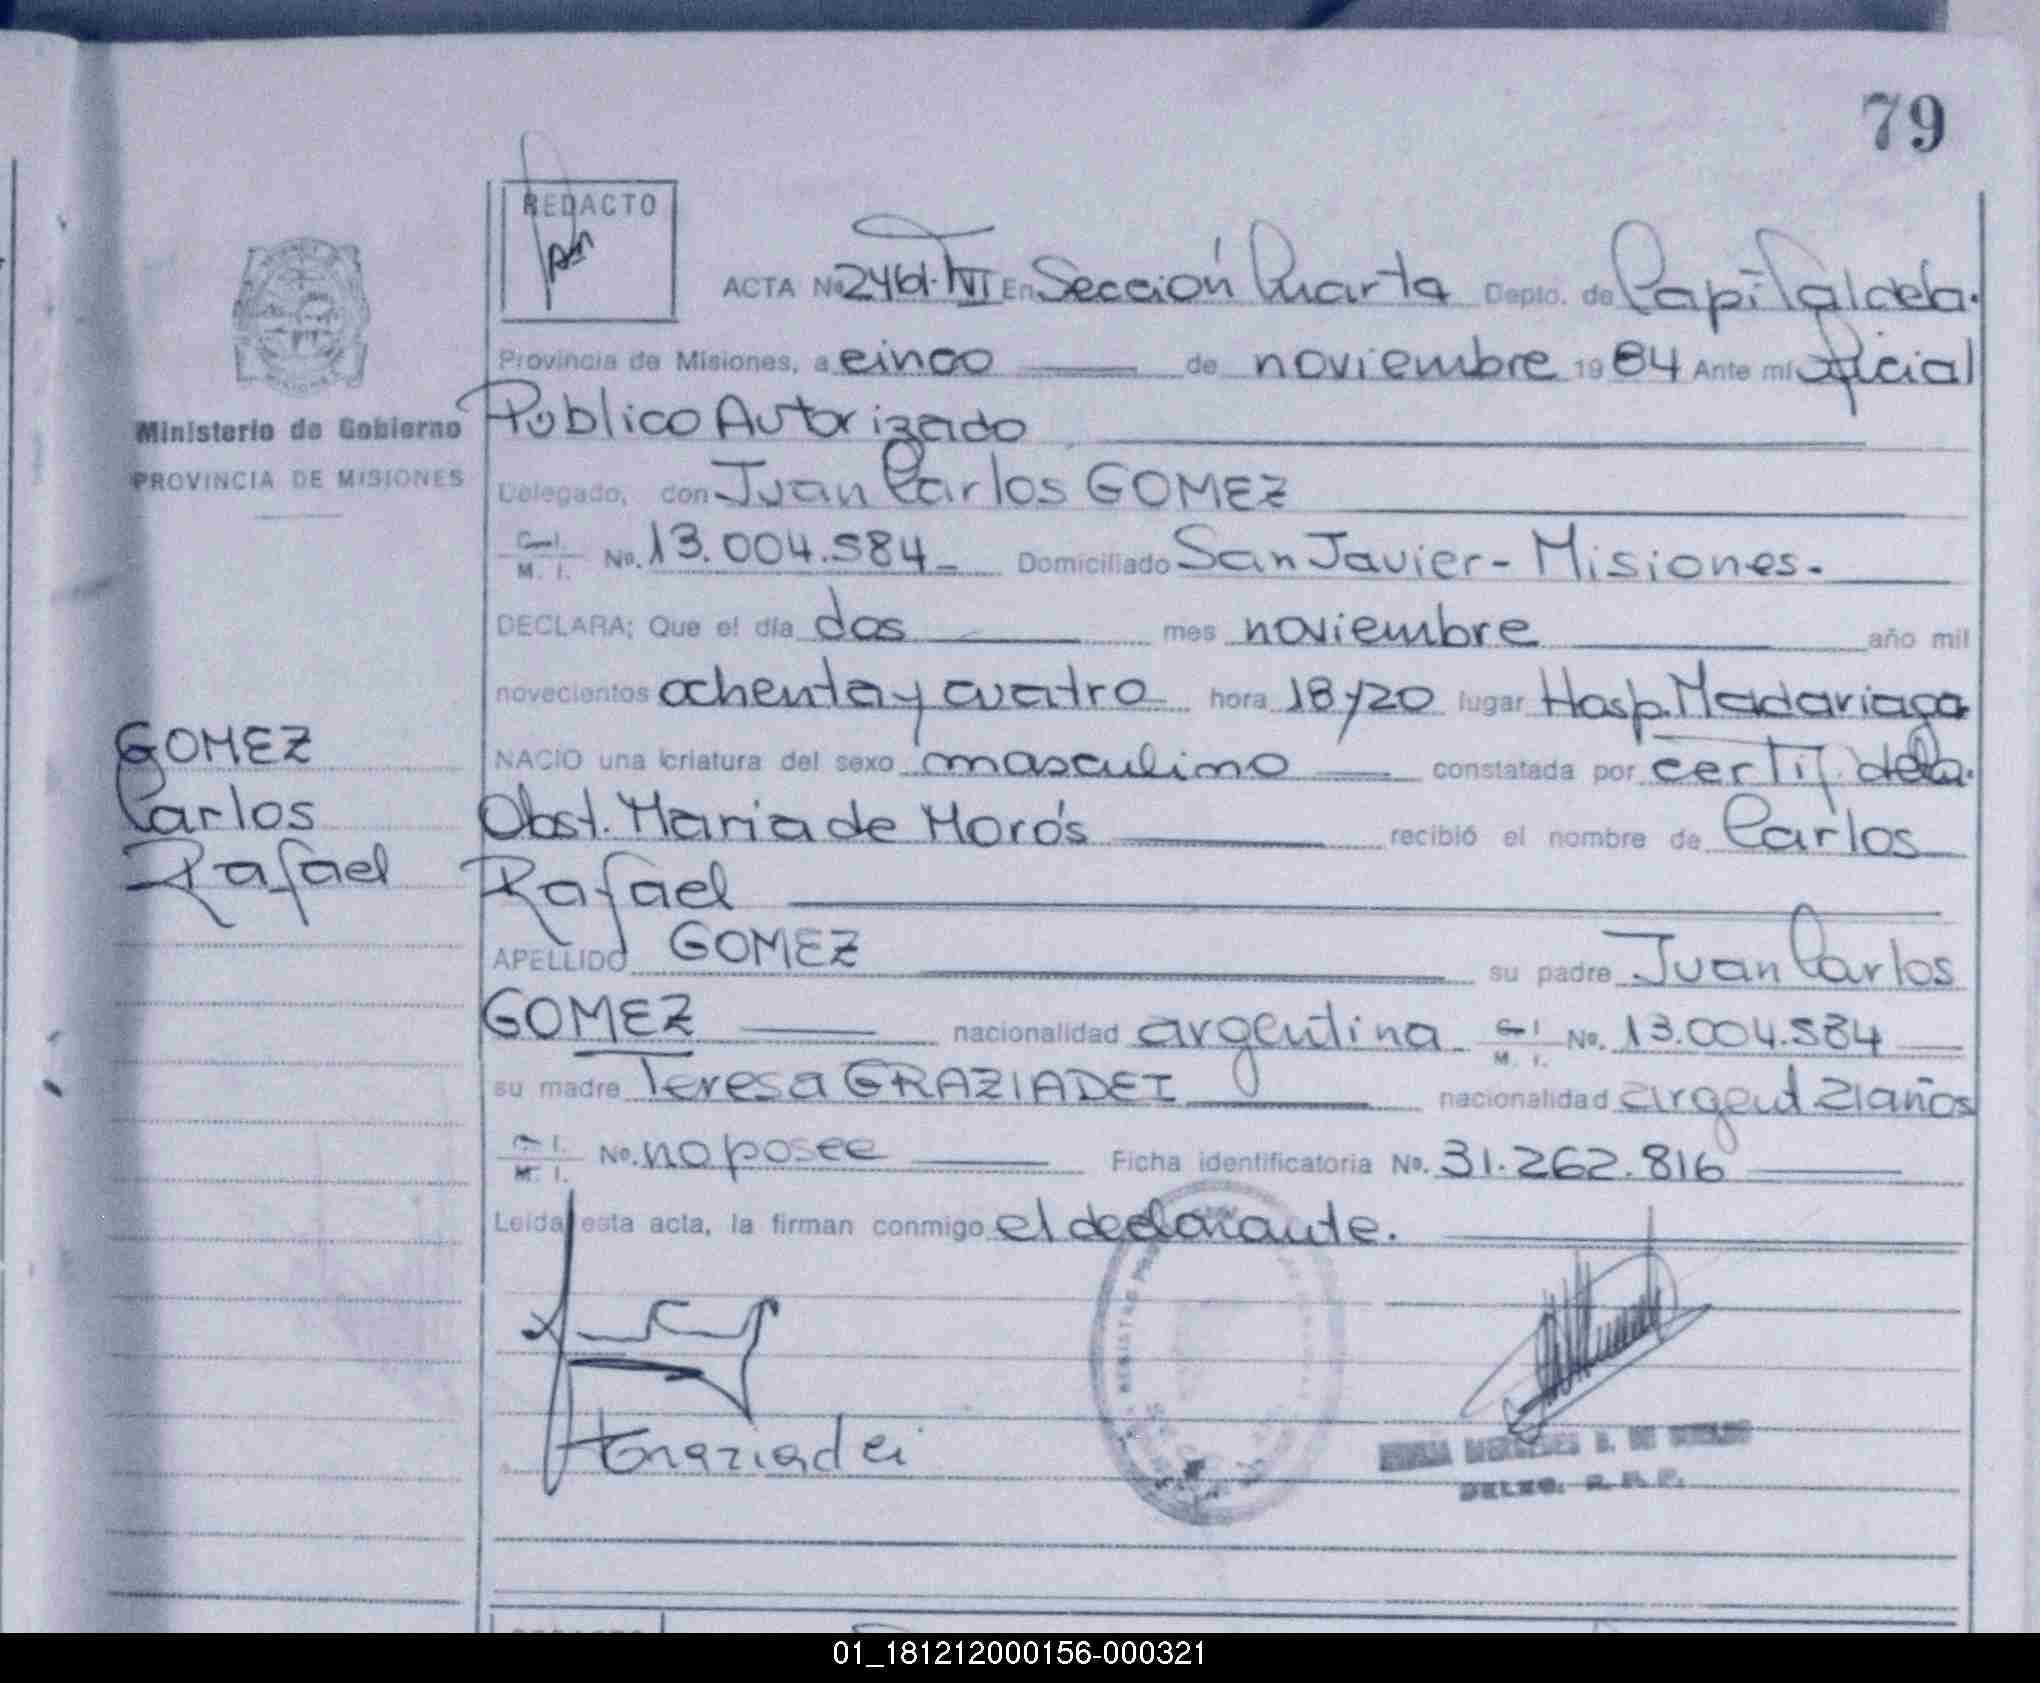 79
REDACTO
ACTA No 2461. TVI En Sección Cuarta Depto. de Capital de la.
Provincia de Misiones, a cinco de noviembre 1984 Ante mí Oficial
Ministerio de Gobierno
PROVINCIA DE MISIONES
Público Autorizado
Delegado, don Juan Carlos GOMEZ
C. I. M. I. No. 13.004.584 Domiciliado San Javier - Misiones.
DECLARA; Que el día dos mes noviembre año mil
novecientos ochenta y cuatro hora 18 y 20 lugar Hosp. Madariaga
NACIO una criatura del sexo masculino constatada por certif. de la.
Obst. Maria de Morós recibió el nombre de Carlos
Rafael
GOMEZ
Carlos
Rafael
APELLIDO GOMEZ su padre Juan Carlos
GOMEZ nacionalidad argentina C. I. M. I. No. 13.004.584
su madre Teresa GRAZIADEI nacionalidad argent 21 años
C. I. M. I. No. no posee Ficha identificatoria No. 31.262.816
Leída esta acta, la firman conmigo el declarante.
Graziadei
DELEG. R. P. P.
01_181212000156-000321